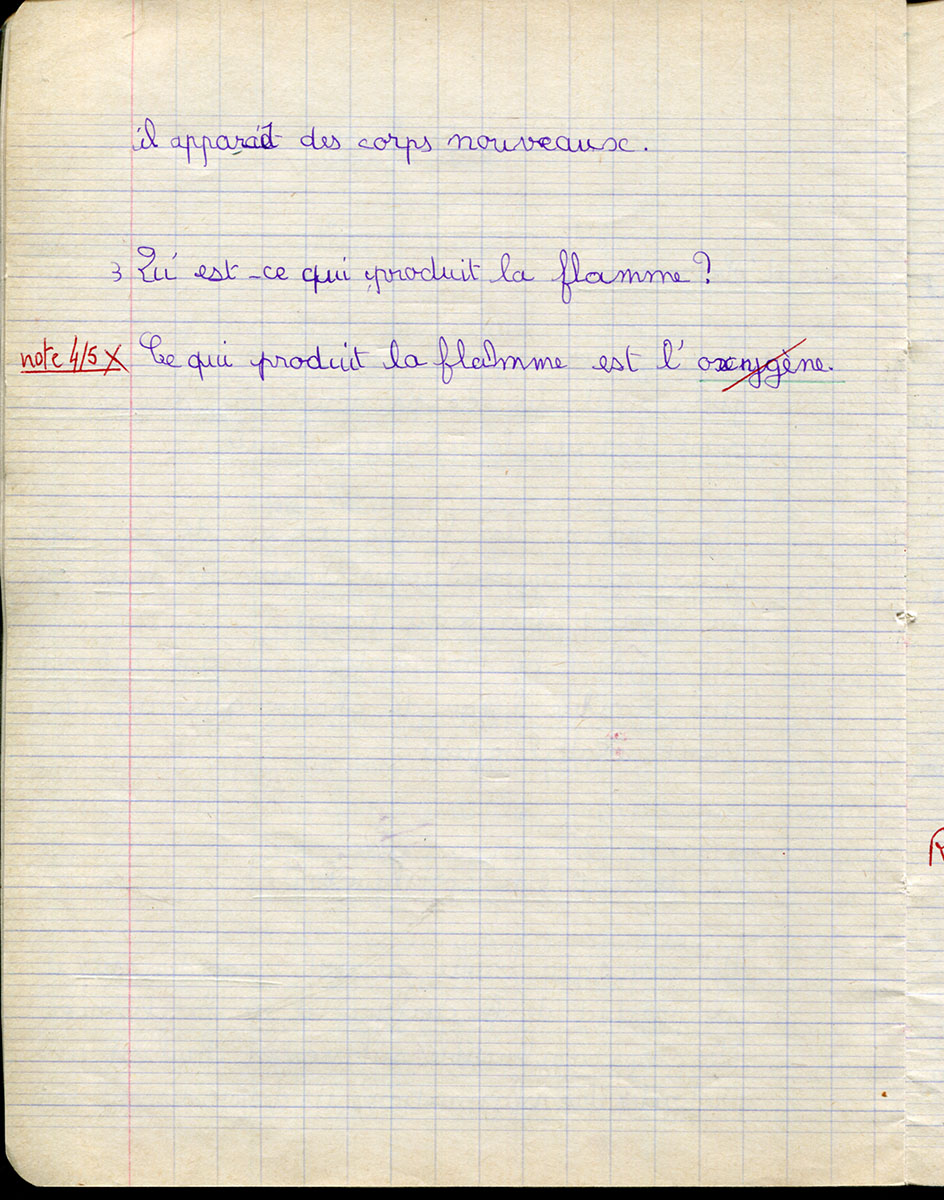 il apparaît des corps nouveaux.
3 Qu'est-ce qui produit la flamme?
note 4/5 X Ce qui produit la flamme est l'oxnygène.